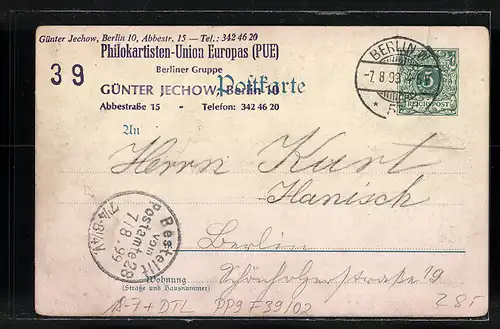 Günter Jechow, Berlin 10, Abbestr. 15 — Tel.: 342 46 20
Philokartisten-Union Europas (PUE)
Berliner Gruppe
39
Postkarte
GÜNTER JECHOW, Berlin 10
Abbestraße 15 - Telefon: 342 46 20
BERLIN
-7.8.99
5
REICHSPOST
An
Herrn Kurt
Hanisch
Berlin
Bestellt
vom
Postamte 28
7/8.99
7¼-8¼V.
Wohnung
(Straße und Hausnummer)
Schönholzerstraße 19
A-7+DTL PP9 F39/02